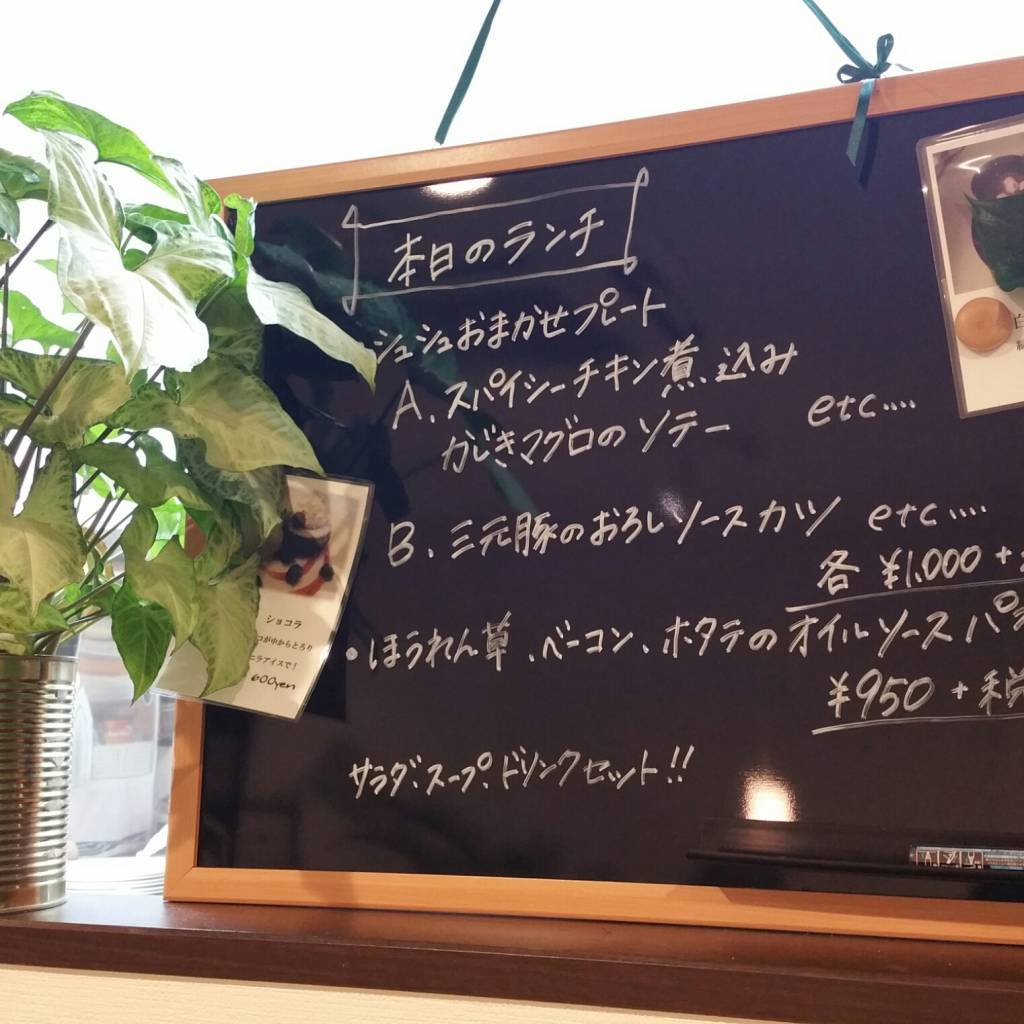 本日のランチ
シュシュおまかせプレート
A. スパイシーチキン煮込み
かじきマグロのソテー etc....
B. 三元豚のおろしソースカツ etc....
各 ¥1,000 +
・ほうれん草、ベーコン、ホタテのオイルソース パ
¥950 + 税
サラダ、スープ、ドリンクセット!!
ショコラ
が中からとろり
ニラアイスで!
600yen
白